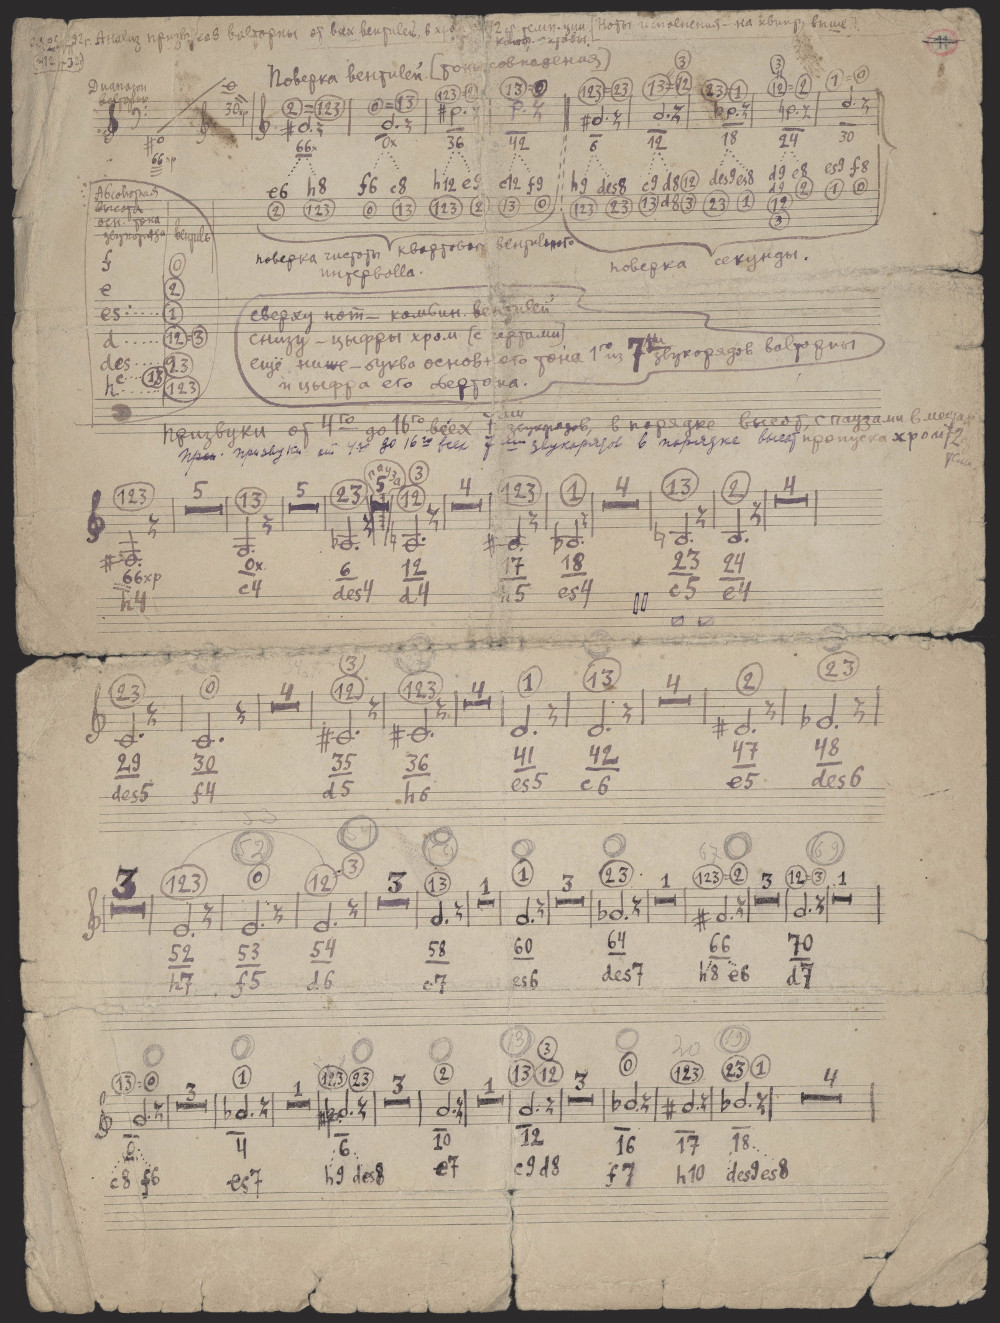 Анализ призвуков валторны от всех вентилей, в 72 ст. темп-ции [Ноты исполнения – на квинту выше].
Поверка вентилей [тоны совпадения]
Диапазон валторны
2=123 0=13 123=2 13=0 123=23 13=12 3 23=1 12=2 3 1=0
66 0x 36 42 6 12 18 24 30
e6 h8 f6 c8 h12 e9 c12 f9 h9 des8 c9 d8 des9 es8 d9 e8 es9 f8
2 123 0 13 123 2 13 0 123 23 13 12 3 23 1 12 2 1 0
3
поверка чистоты квартового вентильного
интервалла.
поверка секунды.
Абсолютная
высота
осн. тона
звукоряда вентиль
f 0
e 2
es 1
d 12=3
des 23
c 13
h 123
сверху нот – комбин. вентилей
снизу – цыфры хром [с чертами]
ещё ниже – буква основного тона 1го из 7ми звукорядов валторны
и цыфра его обертона.
Призвуки от 4го до 16го всех 7ми звукорядов, в порядке высот, с паузами в местах
призвуки от 4го до 16го всех 7ми звукорядов в порядке высот пропуска хром 72
123 5 13 5 23 пауза 5 12 3 4 123 1 4 13 2 4
66хр 0x 6 12 17 18 23 24
h4 c4 des4 d4 h5 es4 c5 e4
23 0 4 12 3 123 4 1 13 4 2 23
29 30 35 36 41 42 47 48
des5 f4 d5 h6 es5 c6 e5 des6
3 123 0 12 3 3 13 1 1 3 23 1 123=2 3 12=3 1
52 53 54 58 60 64 66 70
h7 f5 d6 c7 es6 des7 h8 e6 d7
13=0 3 1 1 123 23 3 2 1 13 12 3 3 0 123 23 1 4
0 4 6 10 12 16 17 18
c8 f6 es7 h9 des8 e7 c9 d8 f7 h10 des9 es8